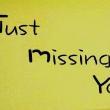 Just
missing
Yo